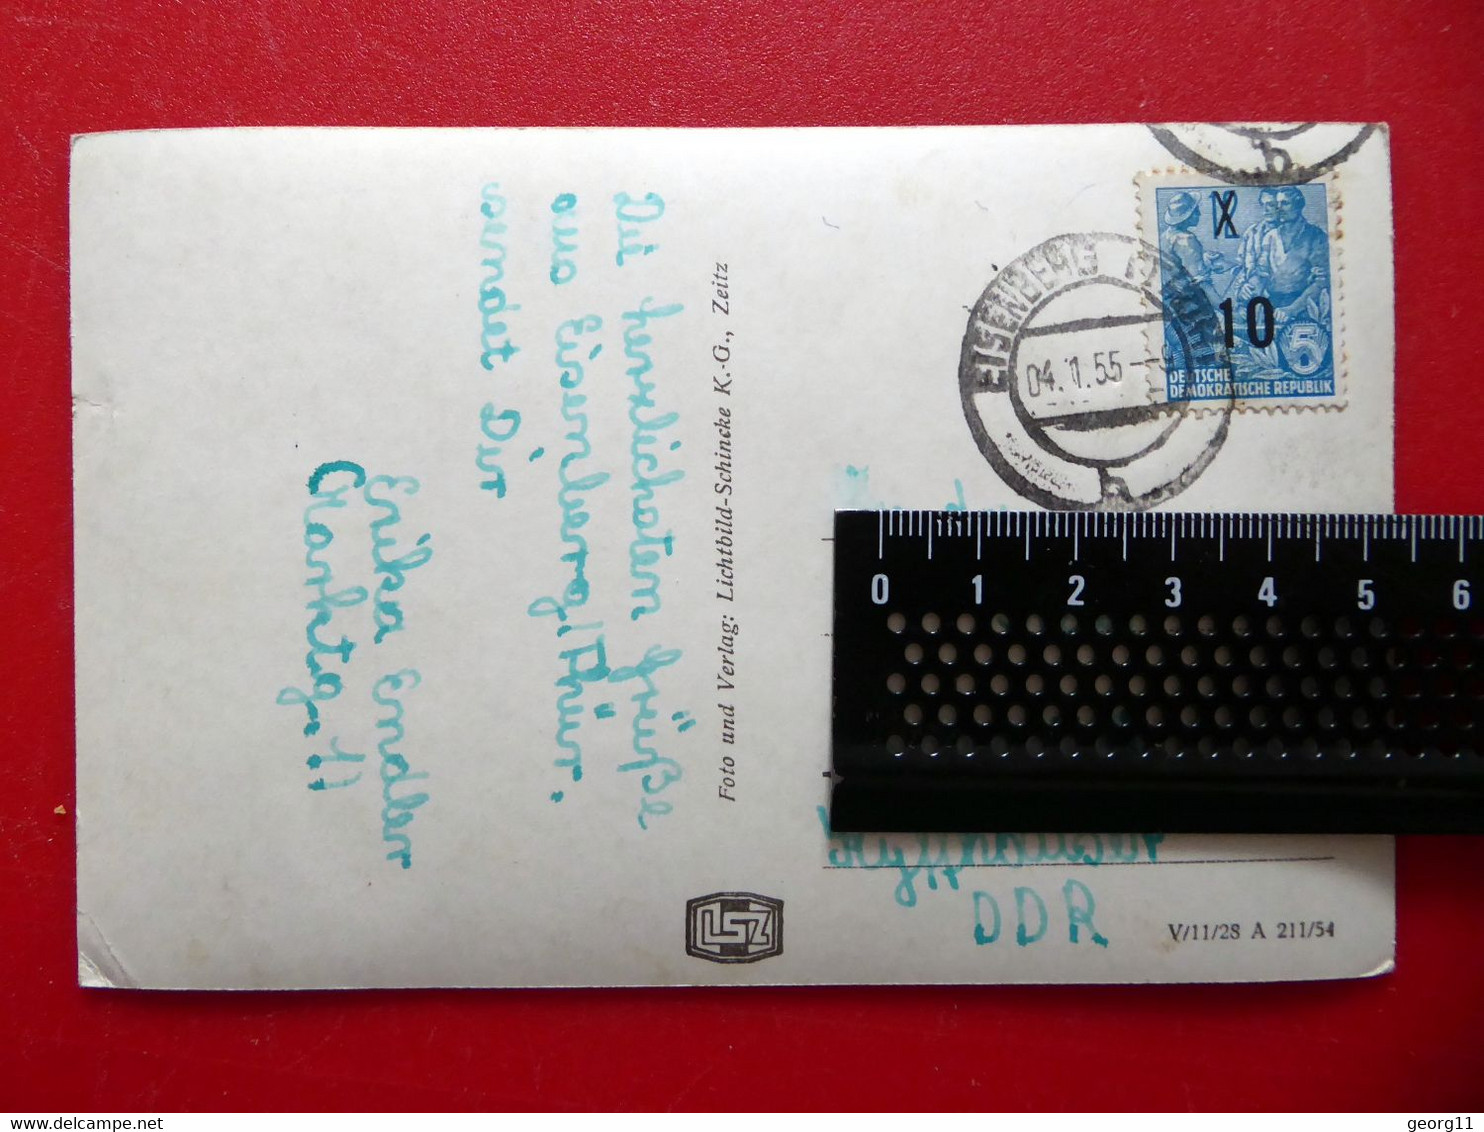 Die herzlichsten Grüße
aus Eisenberg/Thür.
sendet Dir
Erika Endler
Marktg. 11
Foto und Verlag: Lichtbild-Schincke K.-G., Zeitz
LSZ
EISENBERG (THÜR)
04.1.55
b
b
X
10
5
DEUTSCHE
DEMOKRATISCHE REPUBLIK
0 1 2 3 4 5 6
Kyffhäuser
DDR
V/11/28 A 211/54
delcampe.net
georg11